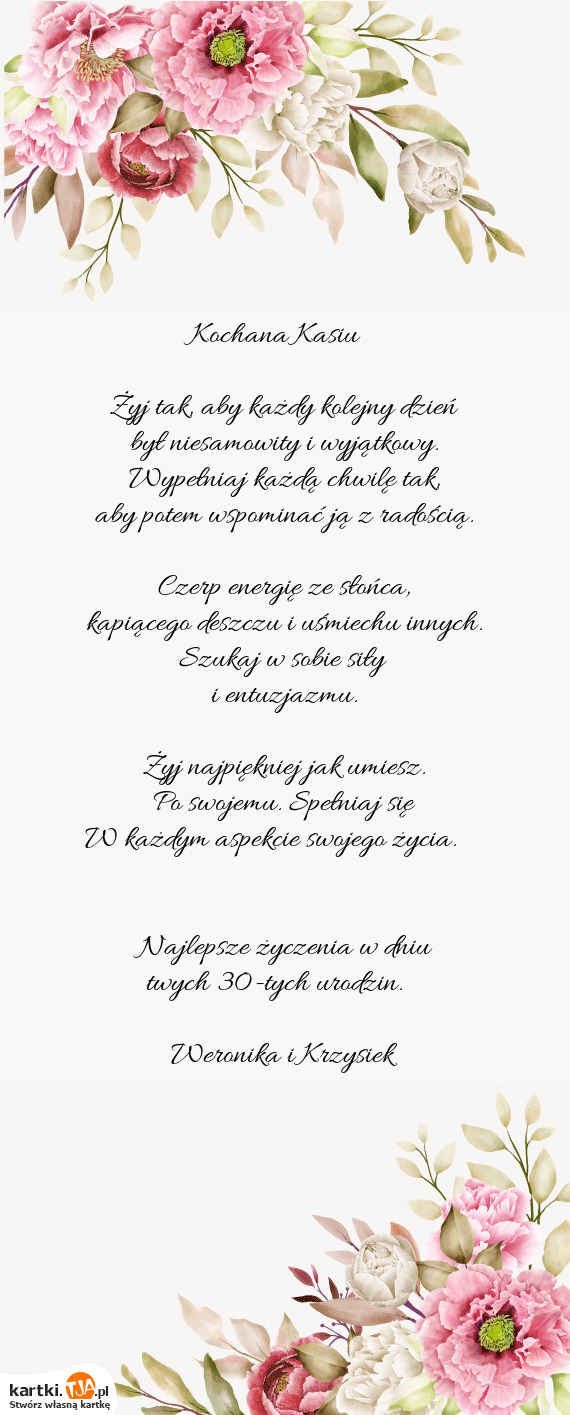 Kochana Kasiu
Żyj tak, aby każdy kolejny dzień
był niesamowity i wyjątkowy.
Wypełniaj każdą chwilę tak,
aby potem wspominać ją z radością.
Czerp energię ze słońca,
kapiącego deszczu i uśmiechu innych.
Szukaj w sobie siły
i entuzjazmu.
Żyj najpiękniej jak umiesz.
Po swojemu. Spełniaj się
W każdym aspekcie swojego życia.
Najlepsze życzenia w dniu
twych 30-tych urodzin.
Weronika i Krzysiek
kartki.TJA.pl
Stwórz własną kartkę